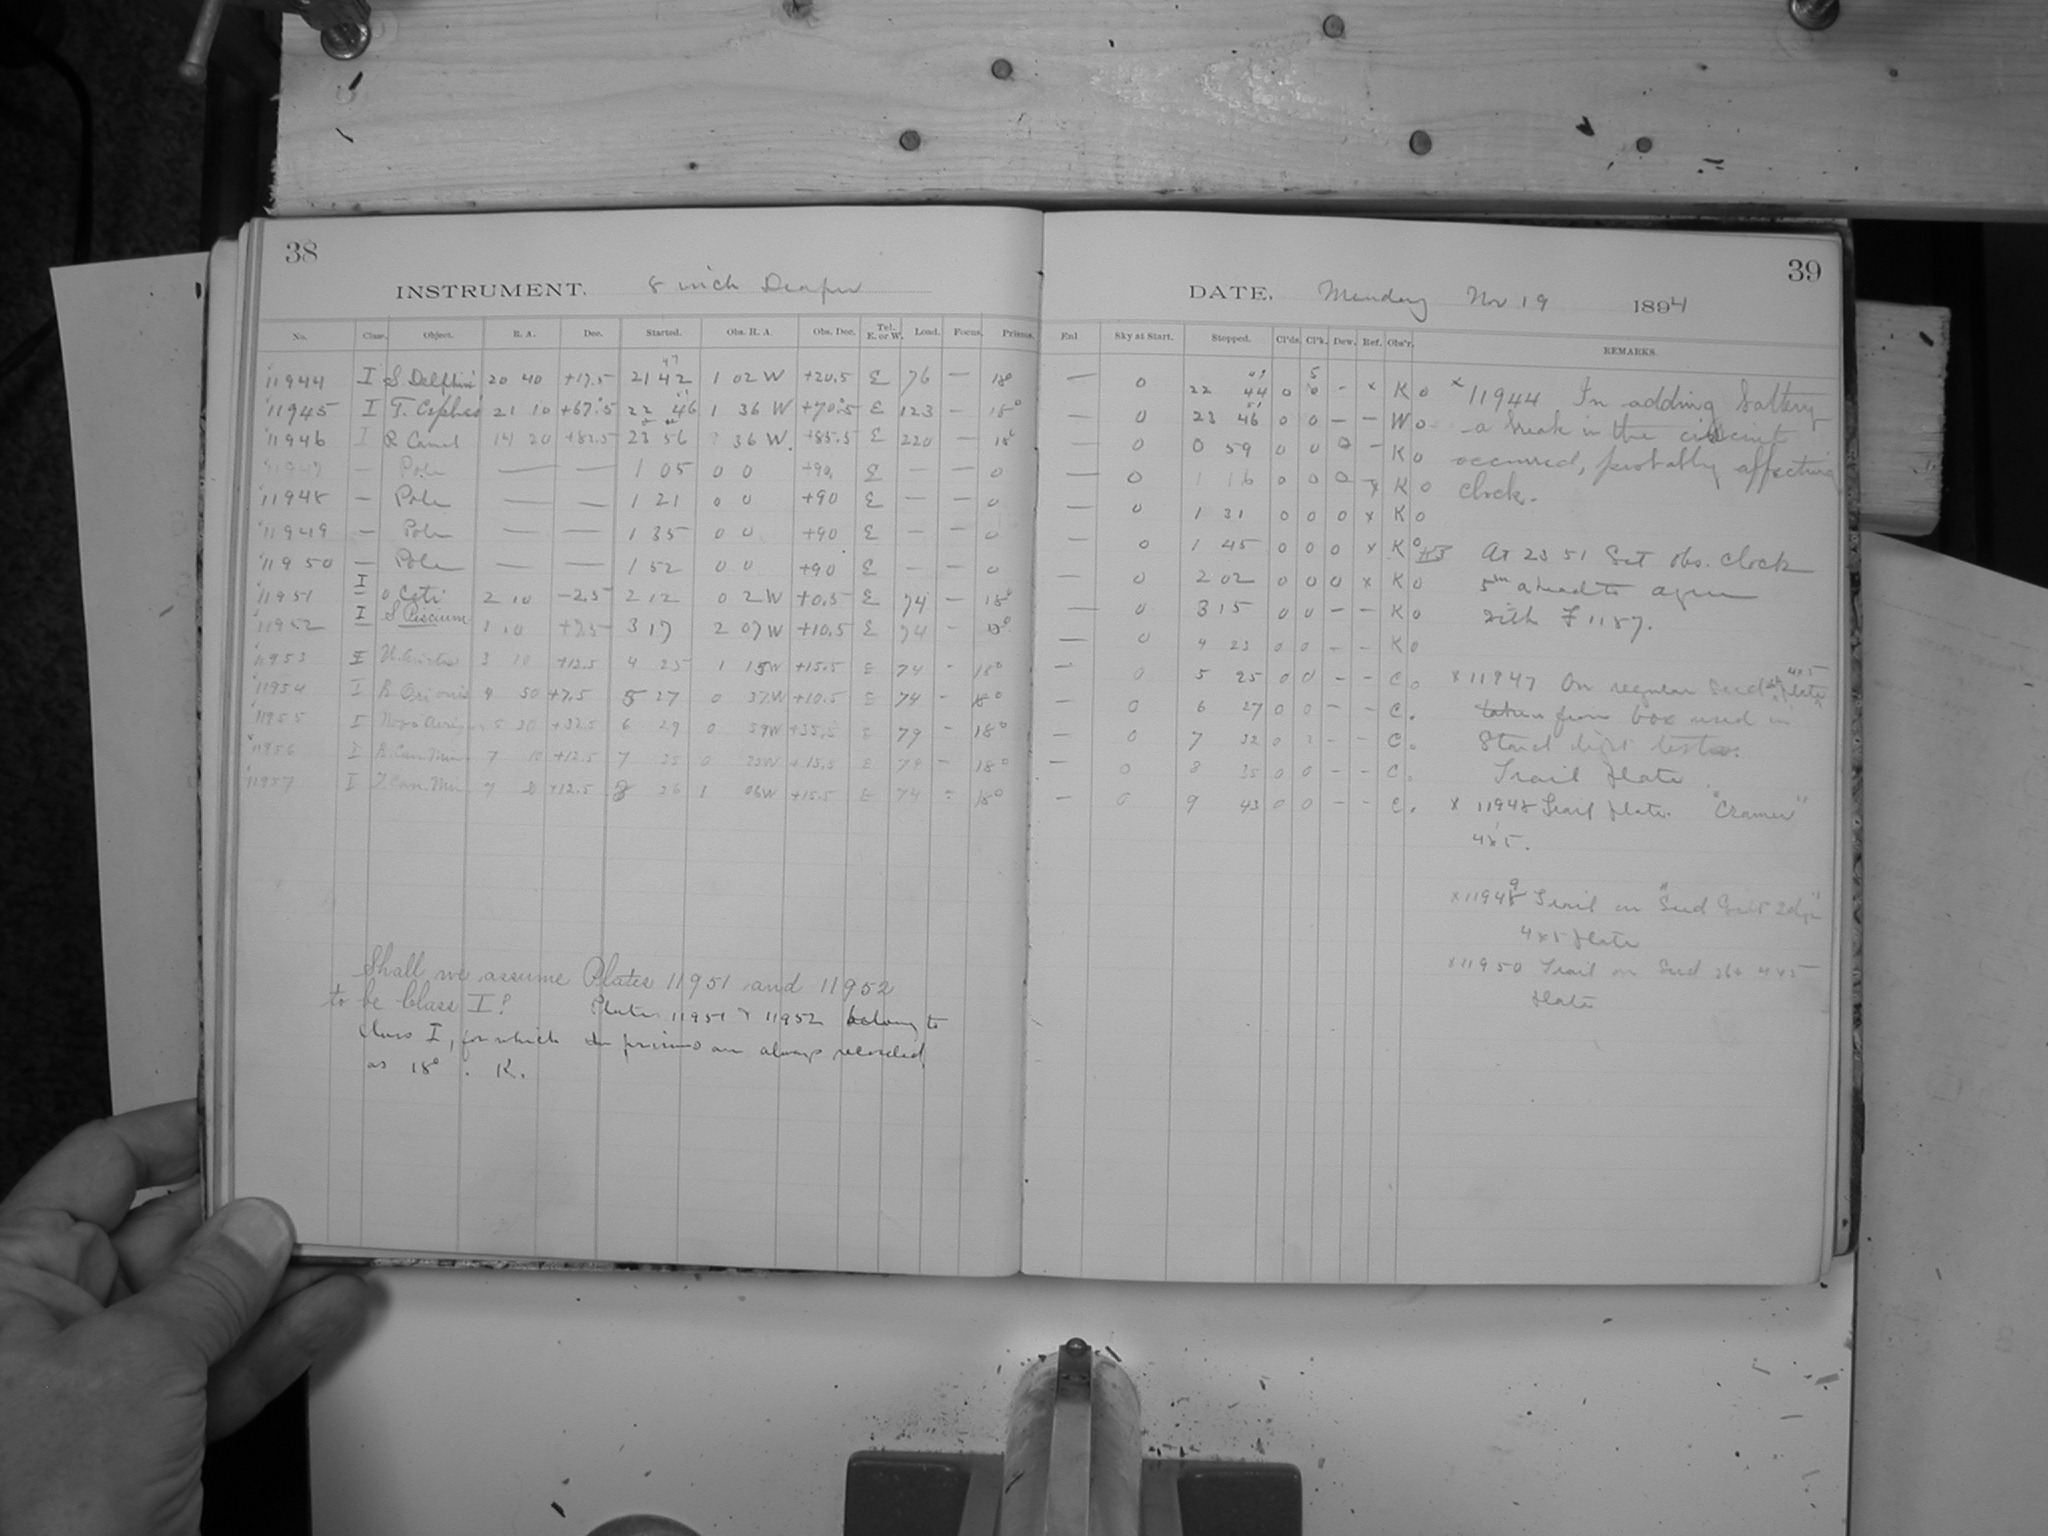 38
INSTRUMENT. 8 inch Draper
No. Class. Object. R. A. Dec. Started. Obs. R. A. Obs. Dec. Tel. E. or W. Load. Focus. Prisms.
11944 I S Delphini 20 40 +17.5 21 42 47 1 02 W +20.5 E 76 — 18°
11945 I T. Cephei 21 10 +67.5 22 46 1 36 W +70.5 E 123 — 18°
11946 I R Camel 14 20 +83.5 23 56 36 W +85.5 E 220 — 18°
11947 — Pole — — 1 05 0 0 +90 E — — 0
11948 — Pole — — 1 21 0 0 +90 E — — 0
11949 — Pole — — 1 35 0 0 +90 E — — 0
11950 — Pole — — 1 52 0 0 +90 E — — 0
11951 I o Ceti 2 10 −2.5 2 12 0 2W +0.5 E 74 — 18°
11952 I S Piscium 1 10 +7.5 3 17 2 07W +10.5 E 74 — 18°
11953 I U. Arietis 3 10 +12.5 4 25 1 15W +15.5 E 74 - 18°
11954 I R Orionis 4 50 +7.5 5 27 0 37W +10.5 E 74 - 18°
11955 I Nova Aurig 5 30 +32.5 6 29 0 59W +35.5 E 79 - 18°
11956 I R. Can. Min. 7 10 +12.5 7 35 0 25W +15.5 E 74 - 18°
11957 I T. Can. Min. 7 +12.5 8 36 1 06W +15.5 E 74 - 18°
Shall we assume Plates 11951 and 11952
to be Class I? Plates 11951 & 11952 belong to
class I, for which the prisms are always recorded
as 18°. K.
39
DATE, Monday Nov 19 1894
Enl Sky at Start. Stopped. Cl'ds. Cl'k. Dew. Ref. Obs'r. REMARKS.
— 0 22 44 0 0 5 - x K 0
— 0 23 46 0 0 — — W 0
— 0 0 59 0 0 0 - K 0
— 0 1 16 0 0 0 x K 0
— 0 1 31 0 0 0 x K 0
— 0 1 45 0 0 0 x K 0
— 0 2 02 0 0 0 x K 0
— 0 3 15 0 0 - - K 0
— 0 4 23 0 0 - - K 0
— 0 5 25 0 0 - - C 0
— 0 6 27 0 0 - - C.
— 0 7 32 0 - - C.
— 0 8 35 0 0 - - C.
— 0 9 43 0 0 - - C.
x 11944 In adding battery
a break in the circuit
occurred, probably affecting
clock.
At 23 51 Set obs. clock
5m ahead to agree
with F 1187.
x 11947 On regular Seed 4x5 plate
taken from box used in
Stand light tests.
Trail plate.
x 11948 Trail plate. "Cramer"
4x5.
x 11949 Trail on "Seed
4x5 plate
x 11950 Trail on Seed 26x 4x5
plate